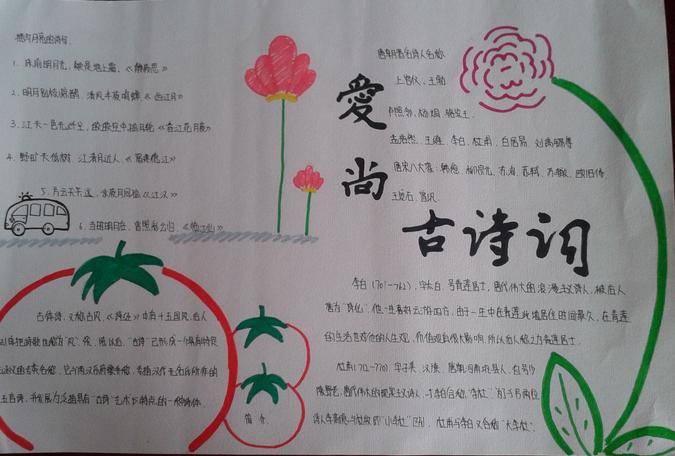 描写月亮的诗句
1. 床前明月光，疑是地上霜。《静夜思》
2. 明月别枝惊鹊，清风半夜鸣蝉《西江月》
3. 江天一色无纤尘，皎皎空中孤月轮《春江花月夜》
4. 野旷天低树，江清月近人《宿建德江》
5. 片云天共远，永夜月同孤《江汉》
6. 当时明月在，曾照彩云归《临江仙》
愛尚
古诗词
唐朝著名诗人名称
上官仪、王勃
卢照邻、杨炯、骆宾王
孟浩然、王维、李白、杜甫、白居易、刘禹锡等
唐宋八大家：韩愈、柳宗元、苏洵、苏轼、苏辙、欧阳修
王安石、曾巩
李白（701-762），字太白，号青莲居士，唐代伟大的浪漫主义诗人，被后人
誉为"诗仙"。他一生喜好云游四方，由于一生中在青莲此地居住的时间最久，在青莲
的生活
人生观，
所以后人称之为青莲居士。
杜甫（712-770），字子美，汉族，唐朝河南巩县人，自号少
陵野老，唐代伟大的现实主义诗人，与李白合称"李杜"。为了与两位
诗人李商隐与杜牧即"小李杜"区别，杜甫与李白又合称"大李杜"。
古体诗，又称古风，《诗经》中有十五国风，后人
简介